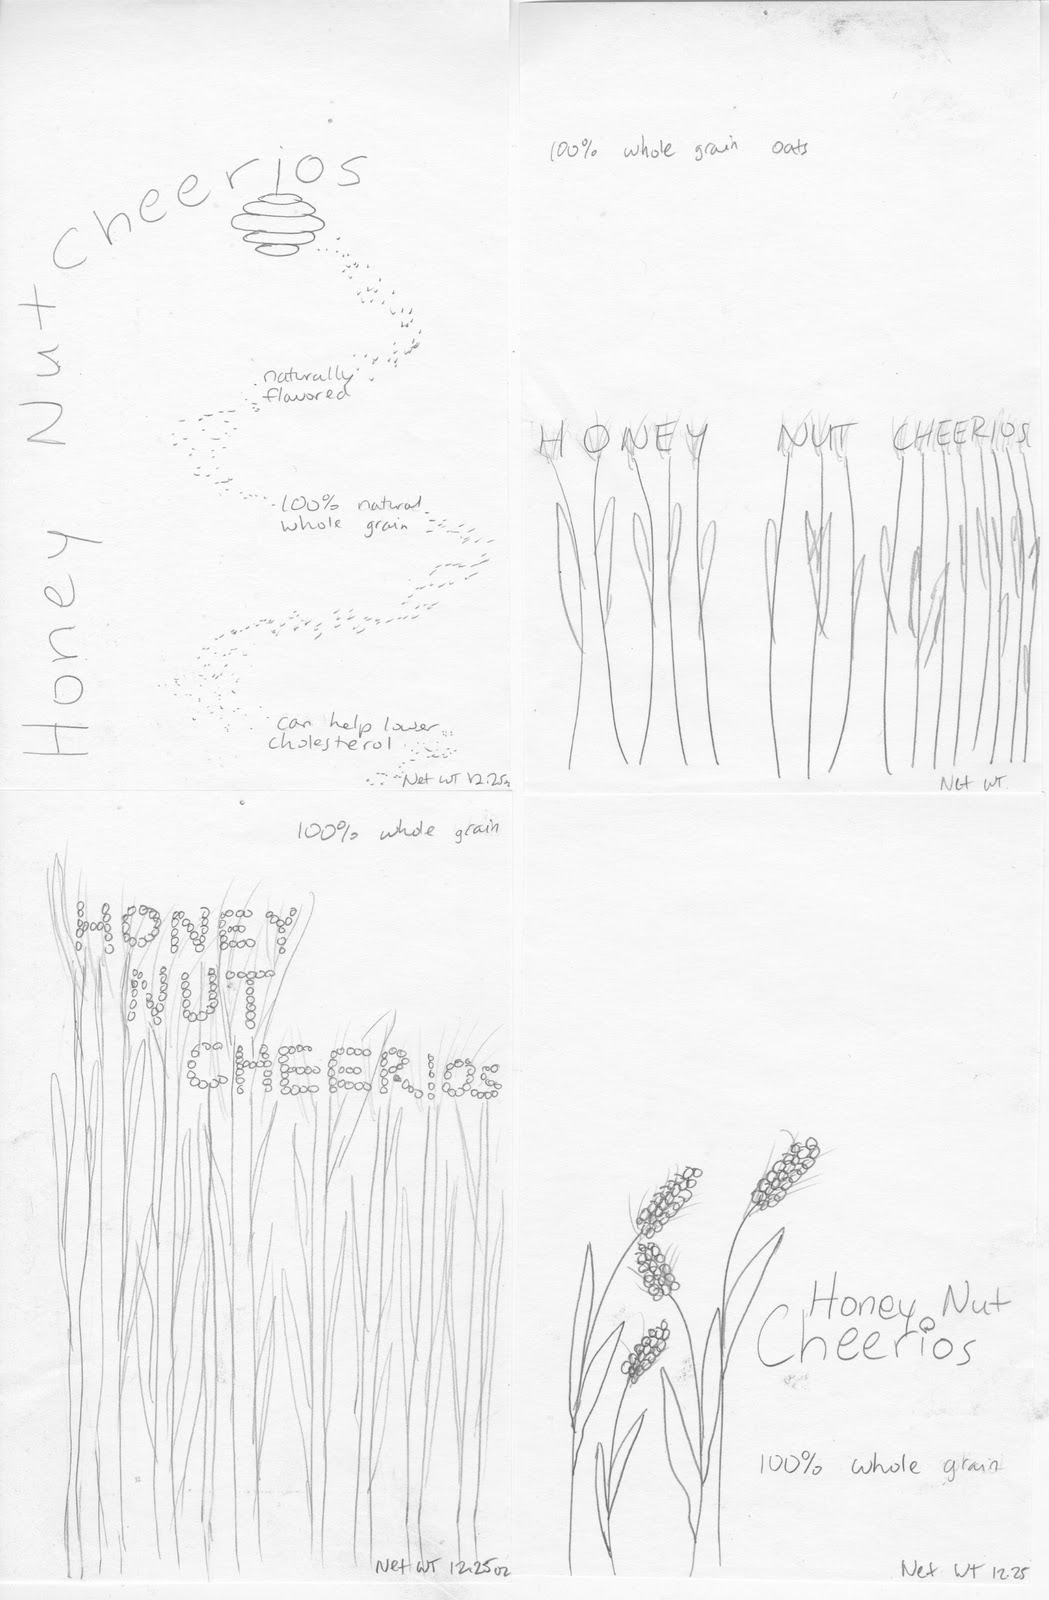 Honey Nut Cheerios
naturally
flavored
100% natural
whole grain
can help lower
cholesterol
Net WT 12.25oz
100% whole grain oats
HONEY NUT CHEERIOS
Net WT.
100% whole grain
HONEY
NUT
CHEERIOS
Net WT 12.25oz
Honey Nut
Cheerios
100% whole grain
Net WT 12.25